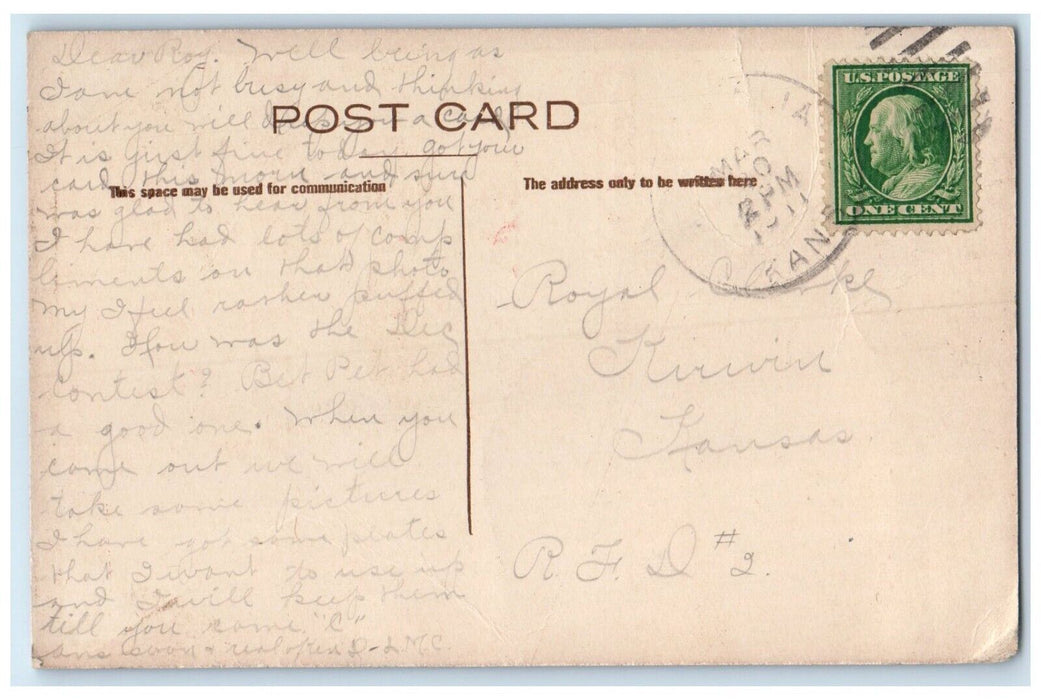 Dear Roy. Well being as
I am not busy and thinking
about you will drop you a card
It is just fine today got your
card this morn and sure
was glad to hear from you
I have had lots of comp
liments on that photo
my I feel rather puffed
up. How was the Dec
contest? Bet Pet had
a good one. When you
come out we will
take some pictures
I have got some plates
that I want to use up
and I will keep them
till you come "C"
ans soon &
POST CARD
This space may be used for communication
The address only to be written here
MAR
PM
KANS
U.S. POSTAGE
ONE CENT
Royal
Kirwin
Kansas.
R. F. D #2.